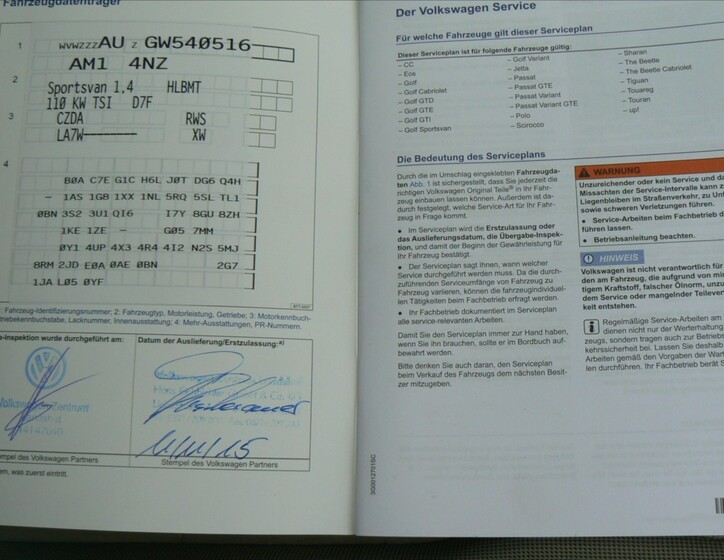 Fahrzeugdatenträger
1
WVWZZZAU Z GW540516
AM1 4NZ
2
Sportsvan 1,4 HLBMT
110 KW TSI D7F
3
CZDA RWS
LA7W-------- XW
4
B0A C7E G1C H6L J0T DG6 Q4H
– 1AS 1G8 1XX 1NL 5RQ 5SL TL1
0BN 3S2 3U1 QI6 I7Y 8GU 8ZH
1KE 1ZE – G05 7MM
0Y1 4UP 4X3 4R4 4I2 N2S 5MJ
8RM 2JD E0A 0AE 0BN 2G7
1JA L05 0YF
Fahrzeug-Identifizierungsnummer; 2: Fahrzeugtyp, Motorleistung, Getriebe; 3: Motorkennbuch-
Lacknummer, Innenausstattung; 4: Mehr-Ausstattungen, PR-Nummern.
-Inspektion wurde durchgeführt am:
Datum der Auslieferung/Erstzulassung:a)
11/11/15
des Volkswagen Partners
Stempel des Volkswagen Partners
was zuerst eintritt.
Der Volkswagen Service
Für welche Fahrzeuge gilt dieser Serviceplan
Dieser Serviceplan ist für folgende Fahrzeuge gültig:
– CC
– Eos
– Golf
– Golf Cabriolet
– Golf GTD
– Golf GTE
– Golf GTI
– Golf Sportsvan
– Golf Variant
– Jetta
– Passat
– Passat GTE
– Passat Variant
– Passat Variant GTE
– Polo
– Scirocco
– Sharan
– The Beetle
– The Beetle Cabriolet
– Tiguan
– Touareg
– Touran
– up!
Die Bedeutung des Serviceplans
Durch die im Umschlag eingeklebten Fahrzeugda-
ten Abb. 1 ist sichergestellt, dass Sie jederzeit die
richtigen Volkswagen Original Teile® in Ihr Fahr-
zeug einbauen lassen können. Außerdem ist da-
durch festgelegt, welche Service-Art für Ihr Fahr-
zeug in Frage kommt.
● Im Serviceplan wird die Erstzulassung oder
das Auslieferungsdatum, die Übergabe-Inspek-
tion, und damit der Beginn der Gewährleistung für
Ihr Fahrzeug bestätigt.
● Der Serviceplan sagt Ihnen, wann welcher
Service durchgeführt werden muss. Da die durch-
zuführenden Serviceumfänge von Fahrzeug zu
Fahrzeug variieren, können die fahrzeugindividuel-
len Tätigkeiten beim Fachbetrieb erfragt werden.
● Ihr Fachbetrieb dokumentiert im Serviceplan
alle service-relevanten Arbeiten.
Damit Sie den Serviceplan immer zur Hand haben,
wenn Sie ihn brauchen, sollte er im Bordbuch auf-
bewahrt werden.
Bitte denken Sie auch daran, den Serviceplan
beim Verkauf des Fahrzeugs dem nächsten Besit-
zer mitzugeben.
WARNUNG
Unzureichender oder kein Service und da
Missachten der Service-Intervalle kann z
Liegenbleiben im Straßenverkehr, zu Un
sowie schweren Verletzungen führen.
● Service-Arbeiten beim Fachbetrieb d
führen lassen.
● Betriebsanleitung beachten.
HINWEIS
Volkswagen ist nicht verantwortlich für
den am Fahrzeug, die aufgrund von mi
tigem Kraftstoff, falscher Ölnorm, unzu
dem Service oder mangelnder Teilever
keit entstehen.
Regelmäßige Service-Arbeiten am
dienen nicht nur der Werterhaltung
zeugs, sondern tragen auch zur Betrieb
kehrssicherheit bei. Lassen Sie deshalb
Arbeiten gemäß den Vorgaben der Wart
len durchführen. Ihr Fachbetrieb berät S